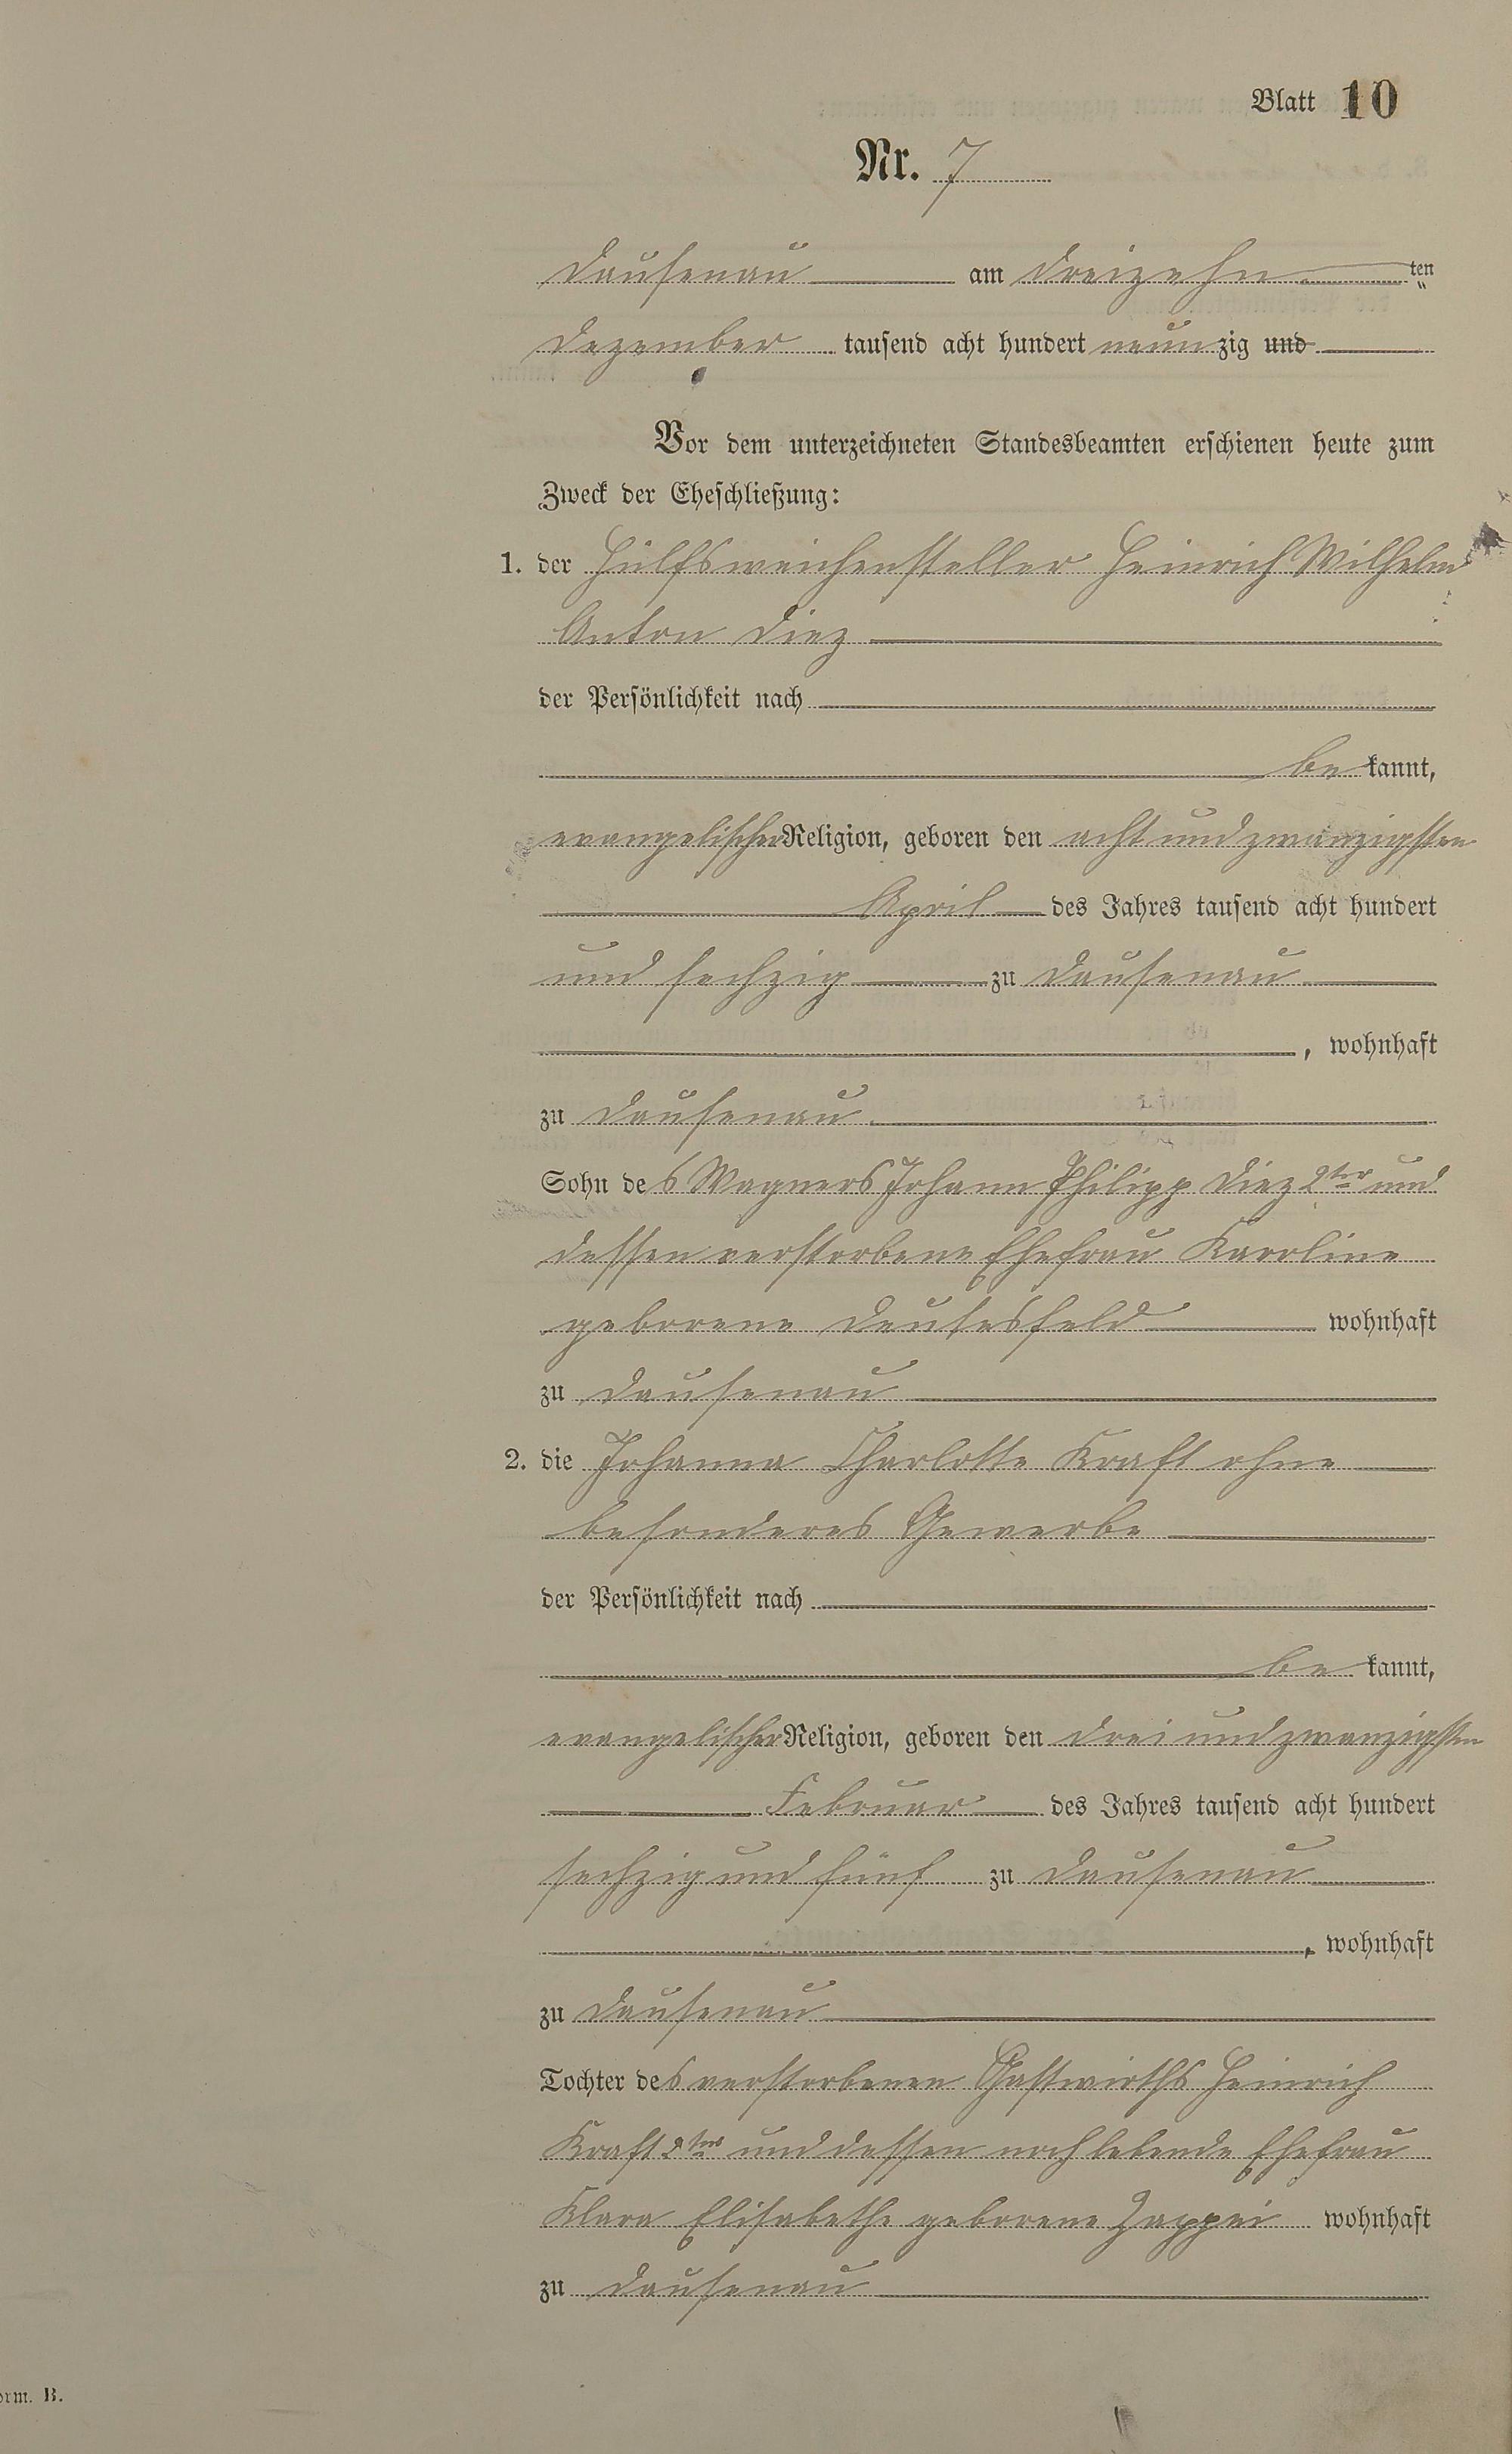 Blatt 10
Nr. 7
Dausenau am dreizehnten
Dezember tausend acht hundert neunzig und
Vor dem unterzeichneten Standesbeamten erschienen heute zum
Zweck der Eheschließung:
1. der Hülfsweichensteller Heinrich Wilhelm
Anton Diez
der Persönlichkeit nach
be kannt,
evangelischer Religion, geboren den acht und zwanzigsten
April des Jahres tausend acht hundert
und sechzig zu Dausenau
, wohnhaft
zu Dausenau
Sohn des Wagners Johann Philipp Diez 2ter und
dessen verstorbene Ehefrau Karoline
geborene Deusesfeld wohnhaft
zu Dausenau
2. die Johanna Charlotte Kraft ohne
besonderes Gewerbe
der Persönlichkeit nach
be kannt,
evangelischer Religion, geboren den drei und zwanzigsten
Februar des Jahres tausend acht hundert
sechzig und fünf zu Dausenau
, wohnhaft
zu Dausenau
Tochter des verstorbenen Gastwirths Heinrich
Kraft 2ter und dessen noch lebende Ehefrau
Klara Elisabethe geborene Zappei wohnhaft
zu Dausenau
orm. B.